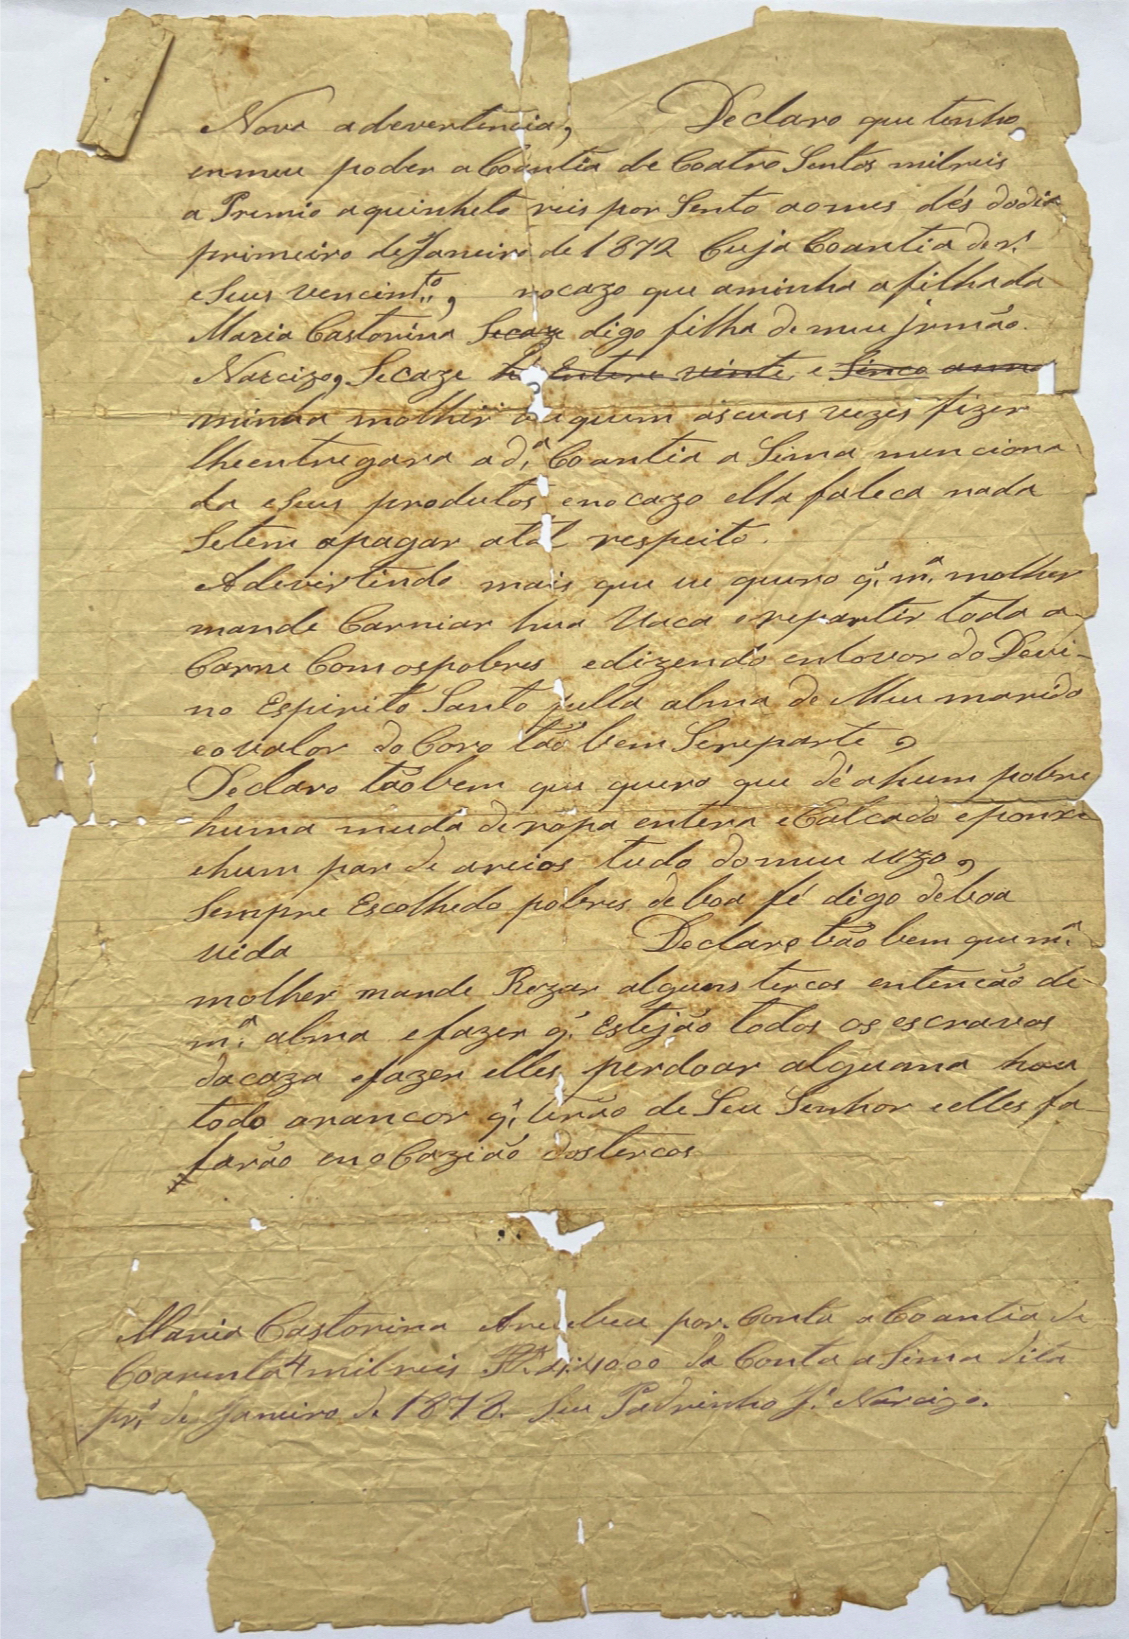 Nova adevertencia, Declaro que tenho
enmeu poder a Coantia de Coatro Sentos milreis
a Premio aquinheto reis por Sento aomes dés dodia
primeiro de Janeiro de 1872 Cuja Coantia de
eSeus vencimto, nocazo que aminha afilhada
Maria Castorina Secaze digo filha de meu jrmão
Narcizo, Secaze entere vinte e Sinco anno
minha molher ou aquem ascuas vezes fizer
lheentregara a da Coantia a Sima menciona
da eSeus produtos enocazo ella faleca nada
Setem apagar atal respeito.
Adevirtindo mais que ue quero q. ma. molher
mande Carniar hua Vaca erepartir toda a
Carne Comospobres edizendo enlovor do Devi-
no Espirito Santo pella alma de Meu marido
eovalor do Coro tão bem Sereparte,
Declaro tãobem que quero que dé ahum pobre
huma muda deropa entera eCalcado eponxe
ehum par de areios tudo domeu uzo,
Sempre Escolhedo pobres deboa fé digo deboa
vida Declaro tão bem que ma.
molher mande Rezar alguns tercos entencão de
ma. alma efazer q. Estejão todos os escravos
dacaza efazer elles perdoar alguma hou
todo arancor q. terão de Seu Senhor eelles fa
farão enoCazião dostercos
Maria Castorina Aresebeu por Conta a Coantia de
Coarenta 4 milreis Rs. 44000 da Conta a Sima dita
pro. de Janeiro de 1878. Seu Padrinho J. Narcizo.